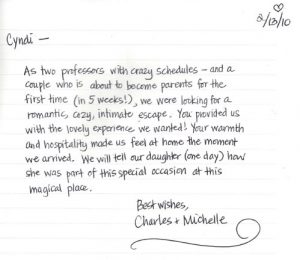 2/13/10
Cyndi —
As two professors with crazy schedules – and a
couple who is about to become parents for the
first time (in 5 weeks!), we were looking for a
romantic, cozy, intimate escape. You provided us
with the lovely experience we wanted! Your warmth
and hospitality made us feel at home the moment
we arrived. We will tell our daughter (one day) how
she was part of this special occasion at this
magical place.
Best wishes,
Charles + Michelle